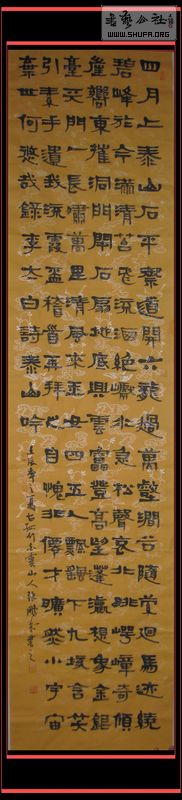 書藝公社
WWW.SHUFA.ORG
四月上泰山石平禦道開六龍過萬壑澗谷隨縈迴馬迹繞
碧峰於今滿青苔飛流洒絕巘水急松聲哀北眺崿嶂奇傾
崖嚮東摧洞門閉石扇地底興雲雷登高望蓬瀛想象金銀
臺天門一長嘯萬里清風來玉女四五人飄颻下九垓含笑
引素手遺我流霞盃稽首再拜之自愧非仙才曠然小宇宙
棄世何悠哉錄李太白詩泰山吟
壬辰年之夏 山人張鵬 書之